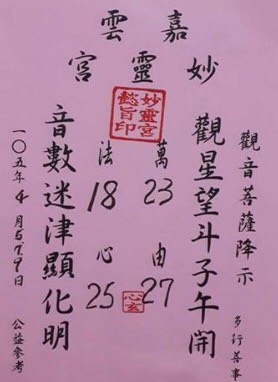 嘉雲
妙靈宮
觀音菩薩降示 多行善事
觀星望斗子午開
妙靈宮
懿旨印
萬 23 由 27
法 18 心 25
心玄
音數迷津顯化明
一〇五年4月5.7.9日 公益參考